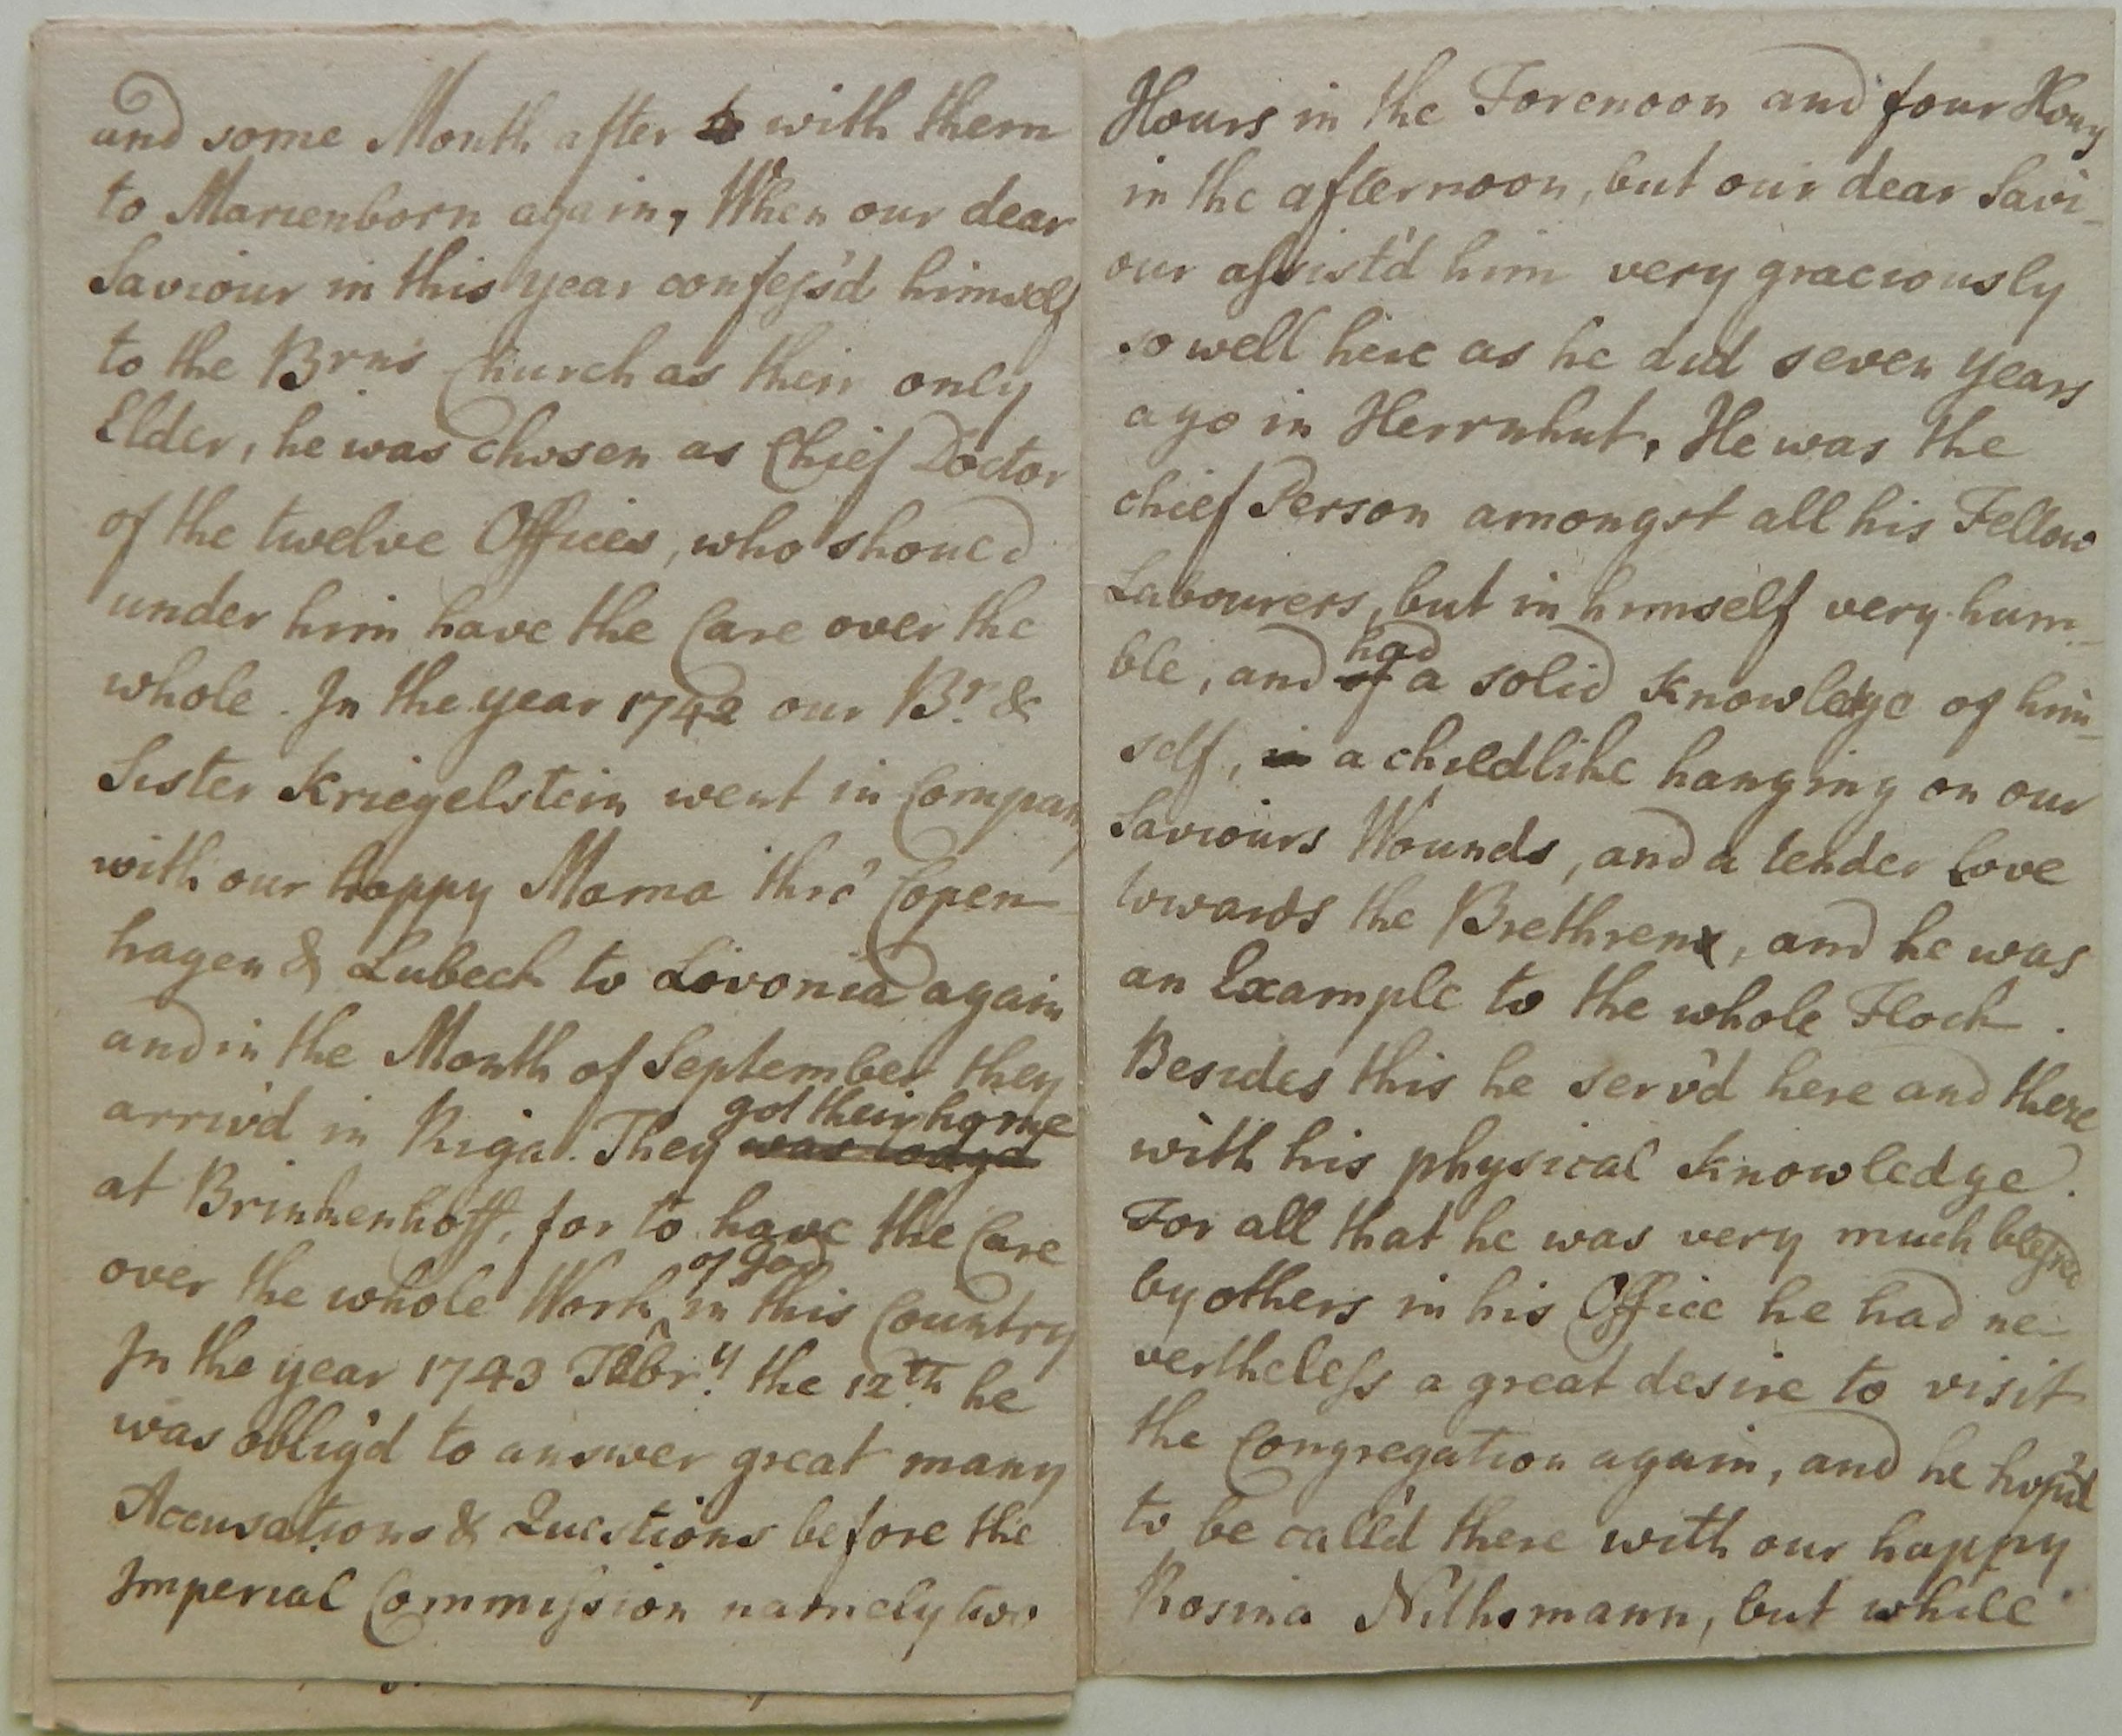 and some Month after with them
to Marienborn again, When our dear
Saviour in this year confess'd himself
to the Brns Church as their only
Elder, he was chosen as Chief Doctor
of the twelve Offices, who shoued
under him have the Care over the
whole. In the year 1742 our Br. &
Sister Kriegelstein went in Company
with our happy Mama thro' Copen-
hagen & Lubeck to Livonia again
and in the Month of September they
arriv'd in Riga. They was lodg'd got their home
at Brinkenhoff, for to have the Care
over the whole Work of God in this Country
In the year 1743 Febry. the 12th he
was oblig'd to answer great many
Accusations & Questions before the
Imperial Commission namely two
Hours in the Forenoon and four Hours
in the afternoon, but our dear Savi-
our assist'd him very graciously
so well here as he did seven years
ago in Herrnhut. He was the
chief Person amongst all his Fellow
Labourers, but in himself very hum-
ble, and of had a solid Knowledge of him-
self, in a childlike hanging on our
Saviours Wounds, and a tender Love
towards the Brethren, and he was
an Example to the whole Flock.
Besides this he serv'd here and there
with his physical Knowledge.
For all that he was very much bless'd
by others in his Office he had ne-
vertheless a great desire to visit
the Congregation again, and he hop'd
to be call'd there with our happy
Rosina Nithsmann, but while